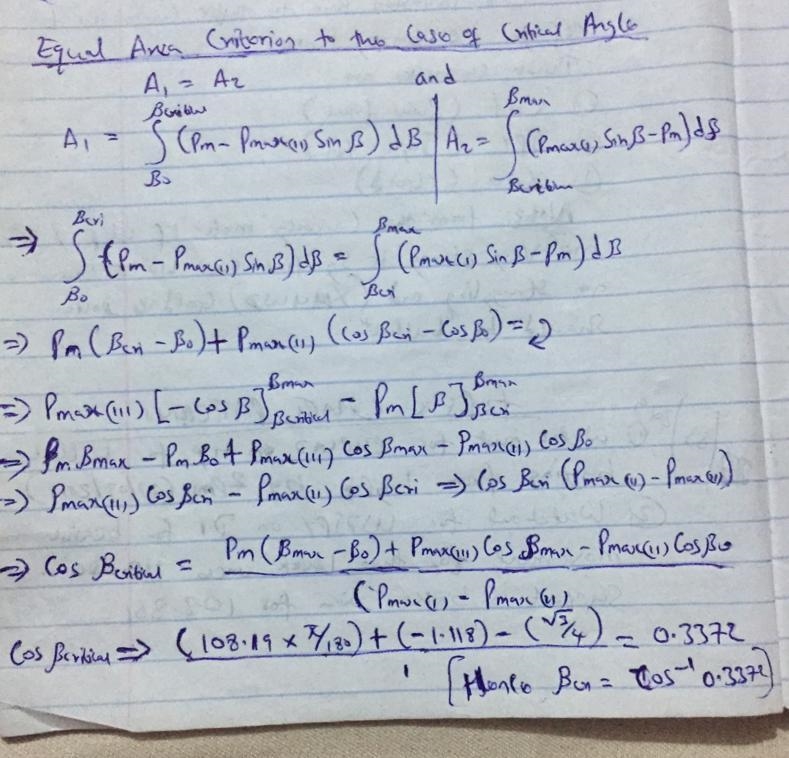 Equal Area Criterion to the Case of Critical Angle
A₁ = A₂ and
A₁ = ∫_{β₀}^{βcritical} (Pm - Pmax(11) Sin β) dβ | A₂ = ∫_{βcritical}^{βmax} (Pmax(1) Sin β - Pm) dβ
⇒ ∫_{β₀}^{βcri} (Pm - Pmax(11) Sin β) dβ = ∫_{βcri}^{βmax} (Pmax(1) Sin β - Pm) dβ
⇒ Pm (βcri - β₀) + Pmax(11) (Cos βcri - Cos β₀) =
⇒ Pmax(111) [- Cos β]_{βcritical}^{βmax} - Pm [β]_{βcri}^{βmax}
⇒ Pm βmax - Pm β₀ + Pmax(111) Cos βmax - Pmax(11) Cos β₀
⇒ Pmax(111) Cos βcri - Pmax(11) Cos βcri ⇒ Cos βcri (Pmax - Pmax)
⇒ Cos βcritical = Pm (βmax - β₀) + Pmax(111) Cos βmax - Pmax(11) Cos β₀
(Pmax - Pmax
Cos βcritical ⇒ (108.19 × π/180) + (-1.118) - (√3/4) = 0.3372
1 [Hence βcri = Cos⁻¹ 0.3372]